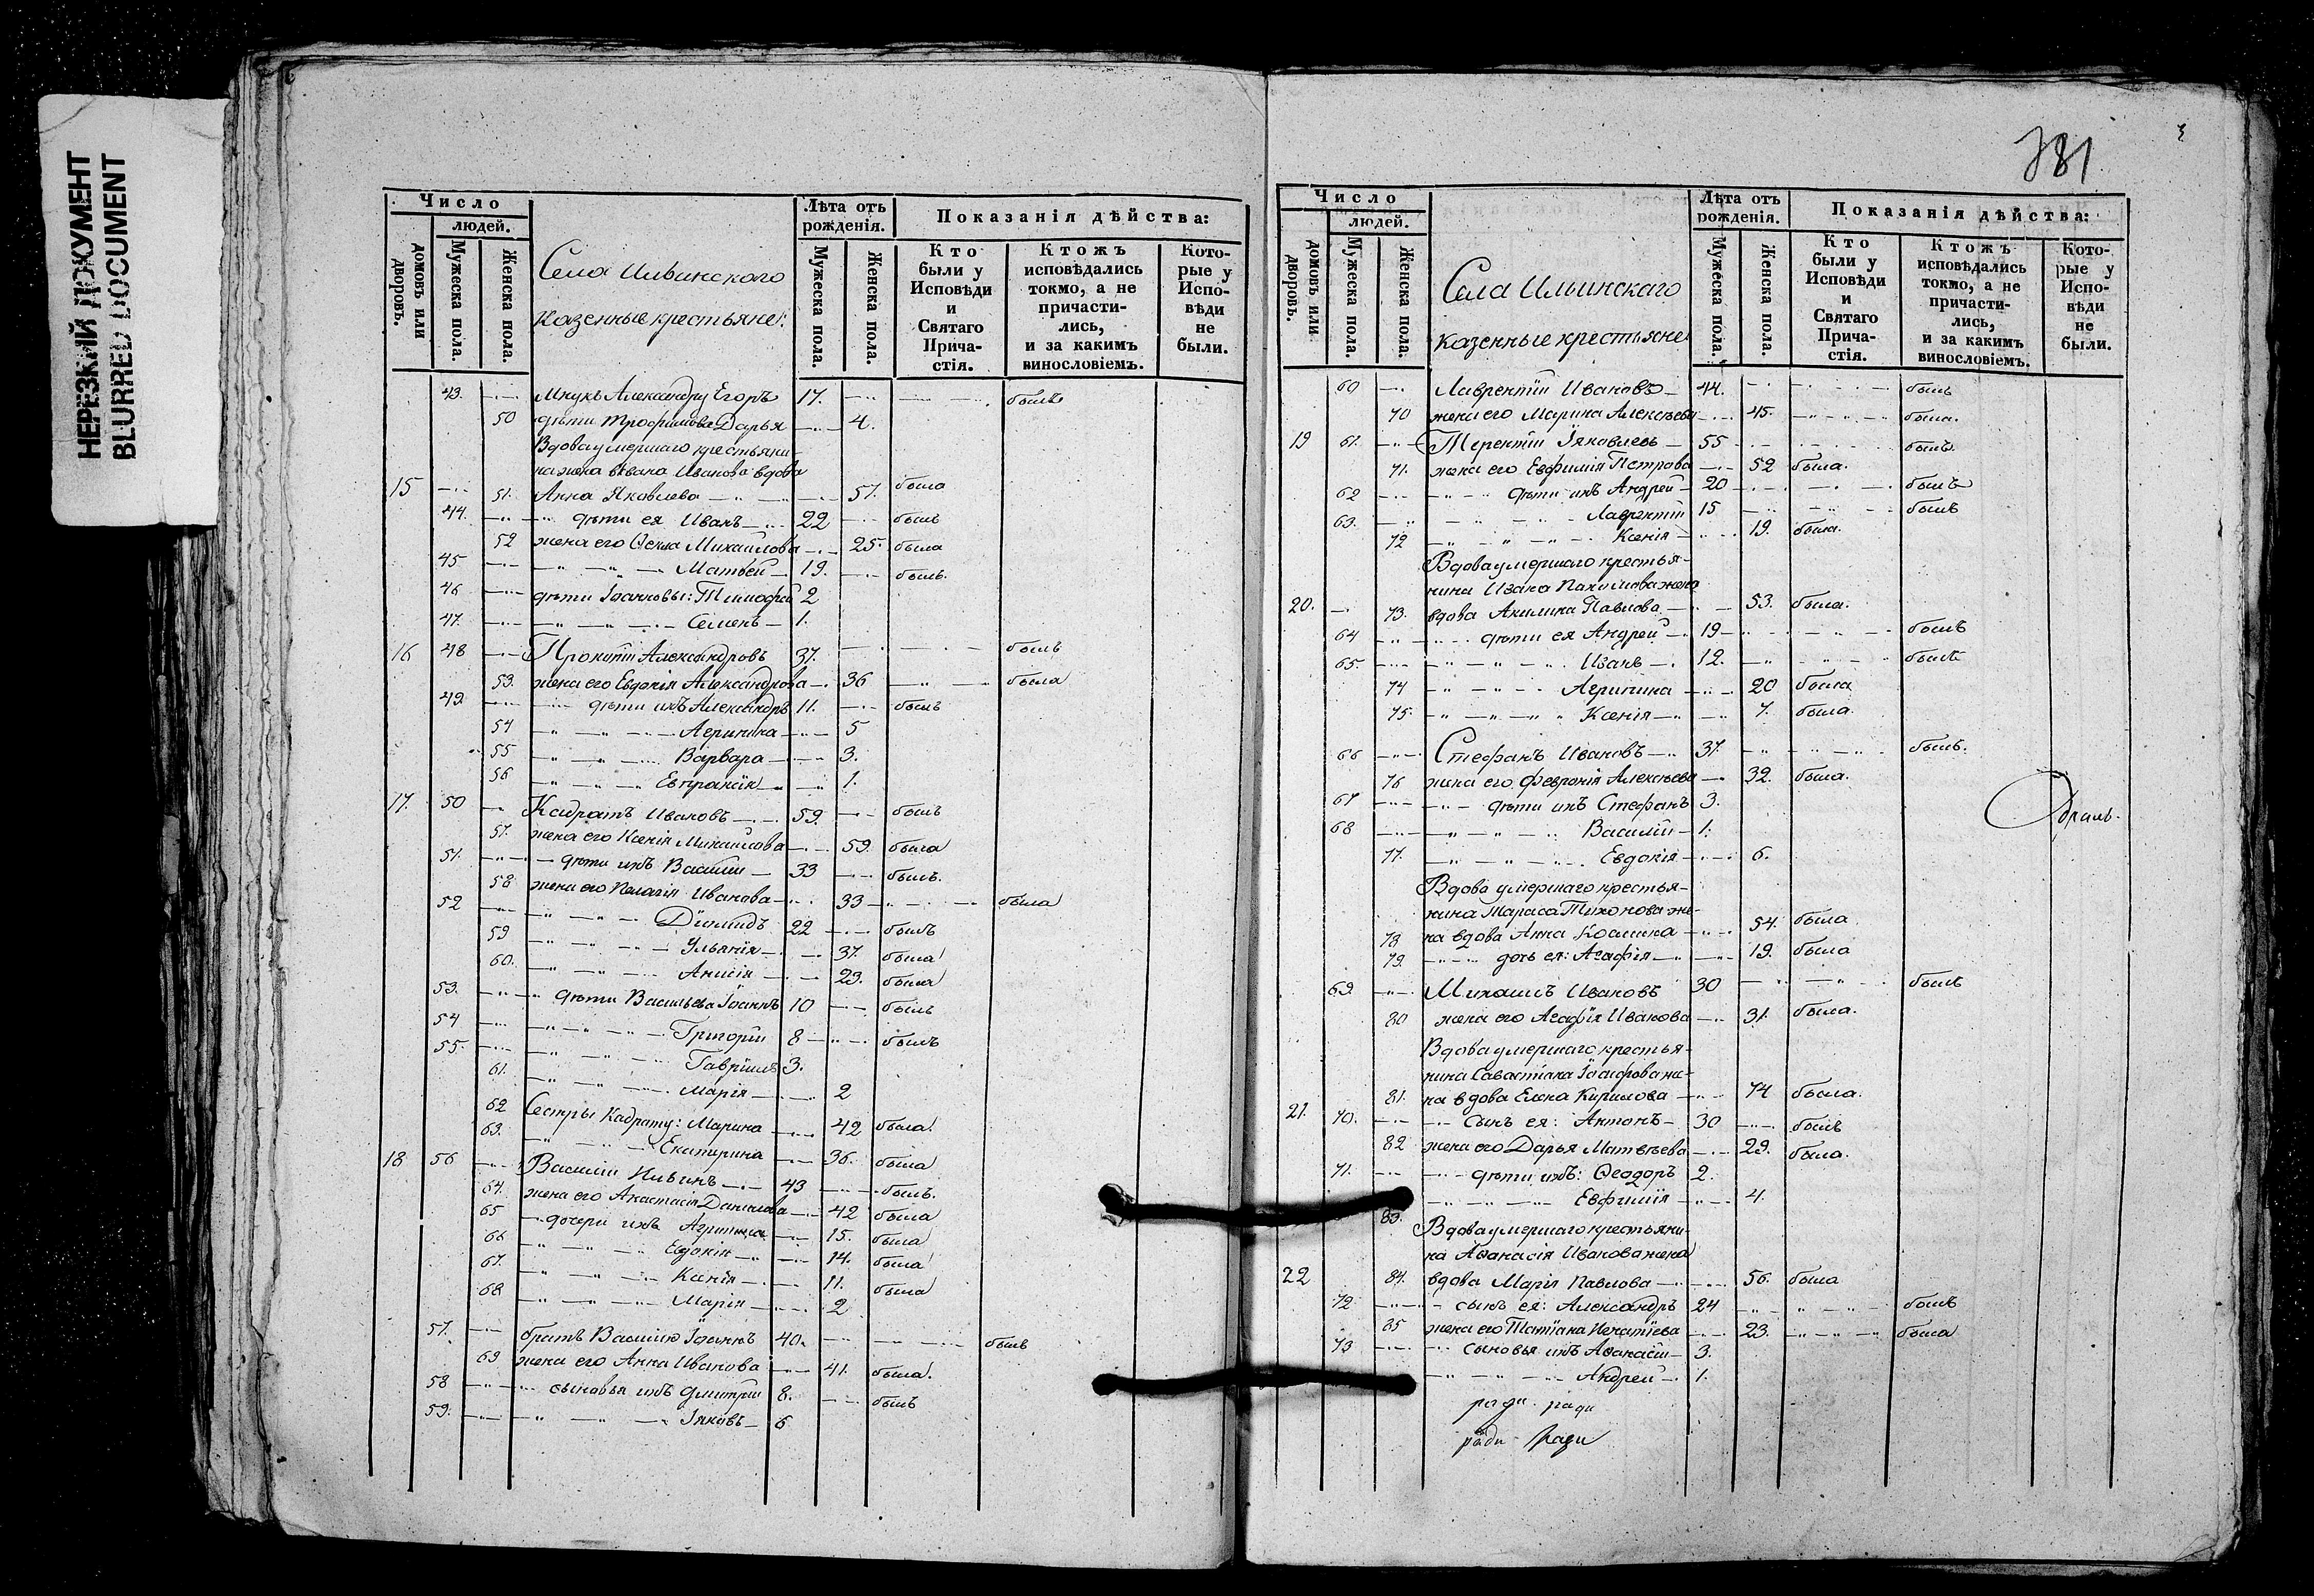 НЕРЕЗКИЙ ДОКУМЕНТ
BLURRED DOCUMENT
Число
людей.
домовъ или дворовъ.
Мужеска пола.
Женска пола.
Села Ильинского
казенные крестьяне:
Лѣта отъ рожденія.
Мужеска пола.
Женска пола.
Показанія дѣйства:
Кто были у Исповѣди и Святаго Прича-стія.
Ктожъ исповѣдались токмо, а не причасти-лись, и за какимъ винословіемъ.
Кото-рые у Испо-вѣди не были.
43. Внукъ Александру Егоръ 17. былъ
50 дѣти Трофимова Дарья 4.
Вдова умершаго крестьяни-
на жена Ивана Иванова вдова
15 51. Анна Яковлева 57. была
44. дѣти ея Иванъ 22 былъ
52 жена его Ѳекла Михайлова 25. была
45 Матвей 19. былъ.
46 дѣти Іоанновы: Тимофей 2
47. Семенъ 1.
16 48 Прокопій Александровъ 37. былъ
53. жена его Евдокія Александрова 36 была
49 дѣти ихъ Александръ 11. былъ
54 Агрипина 5
55 Варвара 3.
56 Евпраксія 1.
17. 50 Кадратъ Ивановъ 59. былъ
57. жена его Ксенія Михайлова 59. была
51. дѣти ихъ Василій 33 былъ.
58 жена его Пелагія Иванова 33 была
52 Діомидъ 22 былъ
59 Ульянія 37. была
60. Анисія 23. была
53. дѣти Васильева Іоаннъ 10 былъ
54 Григорій 8 былъ
55. Гавріилъ 3.
61. Марія 2
62 Сестры Кадрату: Марина 42 была.
63. Екатерина 36. была
18 56 Василій Ильинъ 43 былъ.
64. жена его Анастасія Данилова 42 была
65 дочери ихъ Агрипина 15. была
66 Евдокія 14. была
67. Ксенія 11. была
68 Марія 2
57. братъ Василію Іоаннъ 40. былъ
69 жена его Анна Иванова 41. была.
58 сыновья ихъ Дмитрій 8. былъ
59. Іяковъ 6
381
Число
людей.
домовъ или дворовъ.
Мужеска пола.
Женска пола.
Села Ильинскаго
казенные крестьяне
Лѣта отъ рожденія.
Мужеска пола.
Женска пола.
Показанія дѣйства:
Кто были у Исповѣди и Святаго Прича-стія.
Ктожъ исповѣдались токмо, а не причасти-лись, и за какимъ винословіемъ.
Кото-рые у Испо-вѣди не были.
60 Лаврентій Ивановъ 44. былъ
70 жена его Марина Алексѣева 45. была.
19 61. Терентій Іяковлевъ 55 былъ.
71. жена его Евфимія Петрова 52 была.
62 дѣти ихъ Андрей 20 былъ
63. Лаврентій 15 былъ
72 Ксенія 19. была.
Вдова умершаго крестья-
нина Ивана Пахомова жена
20. 73. вдова Акилина Павлова 53. была.
64 дѣти ея Андрей 19 былъ
65. Иванъ 12. былъ
74 Агрипина 20 была
75. Ксенія 7. была.
66 Стефанъ Ивановъ 37. былъ.
76 жена его Февронія Алексѣева 32. была.
67 дѣти ихъ Стефанъ 3.
68 Василій 1.
77. Евдокія 6.
Вдова умершаго крестья-
нина Тараса Тихонова же-
78 на вдова Анна Козмина 54. была
79. дочь ея: Агафія 19. была
69. Михаилъ Ивановъ 30 былъ
80 жена его Агафія Иванова 31. была.
Вдова умершаго крестья-
нина Савастіана Іосифова же-
81. на вдова Елена Кирилова 74 была.
21. 70. Сынъ ея: Антонъ 30 былъ
82 жена его Дарья Матвѣева 29. была.
71. дѣти ихъ: Ѳеодоръ 2.
83. Евфимія 4.
Вдова умершаго крестьяни-
на Аѳанасія Иванова жена
22 84. вдова Марія Павлова 56. была
72 сынъ ея: Александръ 24 былъ
85 жена его Татіана Игнатіева 23. была
73 сыновья ихъ Аѳанасій 3.
Андрей 1.
ради ради
ради ради